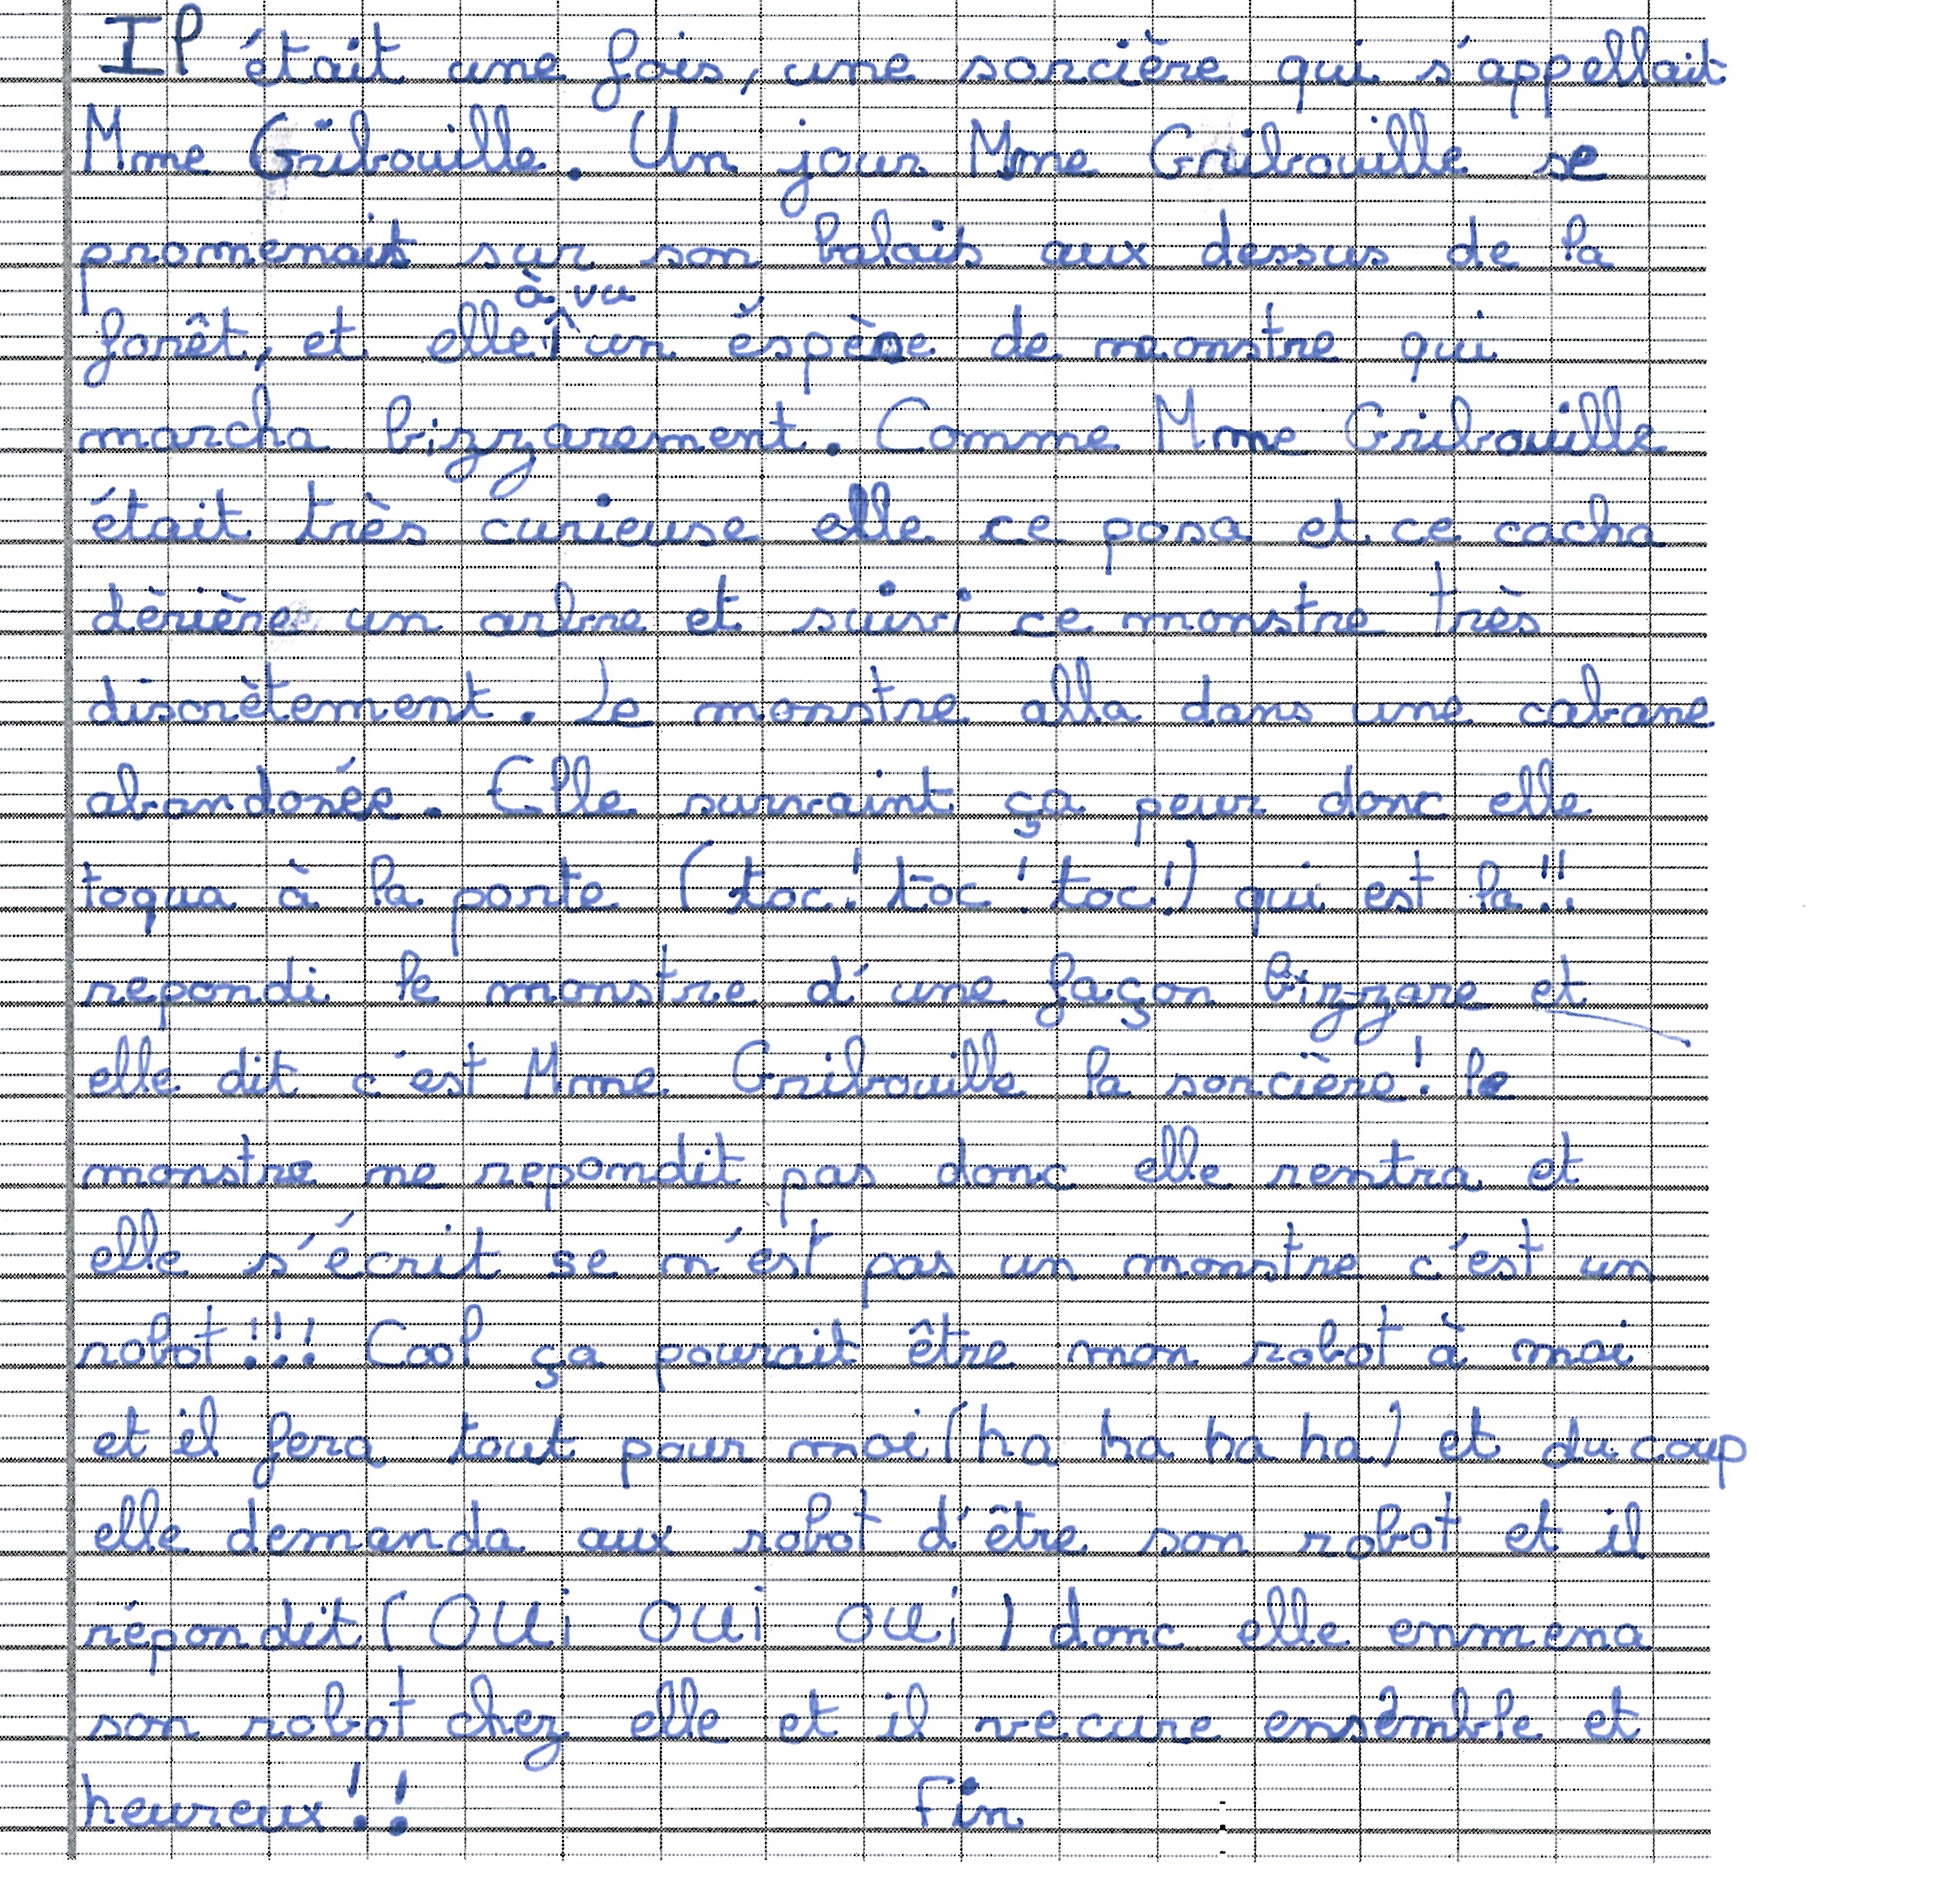 Il était une fois, une sorcière qui s'appellait
Mme Gribouille. Un jour Mme Gribouille se
promenait sur son balais aux dessus de la
à vu
forêt, et elle un éspèce de monstre qui
marcha bizzarement. Comme Mme Gribouille
était très curieuse elle ce posa et ce cacha
dèrière un arbre et suivi ce monstre très
discrètement. Le monstre alla dans une cabane
abandonée. Elle survaint ça peur donc elle
toqua à la porte (toc! toc! toc!) qui est la!!
repondi le monstre d'une façon bizzare et
elle dit c'est Mme Gribouille la sorcière! le
monstre ne repondit pas donc elle rentra et
elle s'écrit se n'est pas un monstre c'est un
robot!!! Cool ça pourait être mon robot à moi
et il fera tout pour moi (ha ha ha ha) et du coup
elle demanda aux robot d'être son robot et il
répondit (OUi OUi OUi) donc elle enmena
son robot chez elle et il vecure ensemble et
heureux!! Fin